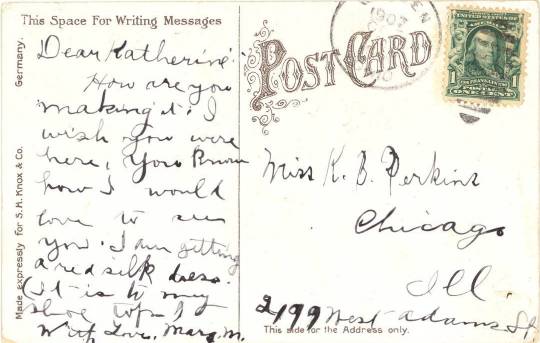 This Space For Writing Messages
Dear Katherine:
How are you
making it. I
wish you were
here, You Know
how I would
love to see
you. I am getting
a red silk dress.
(It is to my
shoe tops)
With Love, Marg. M.
Germany.
Made expressly for S. H. Knox & Co.
POST CARD
1907
UNITED STATES OF AMERICA
1 1
POSTAGE
ONE CENT
Miss K. B. Perkins
Chicago
Ill.
2199 West Adams St.
This side for the Address only.